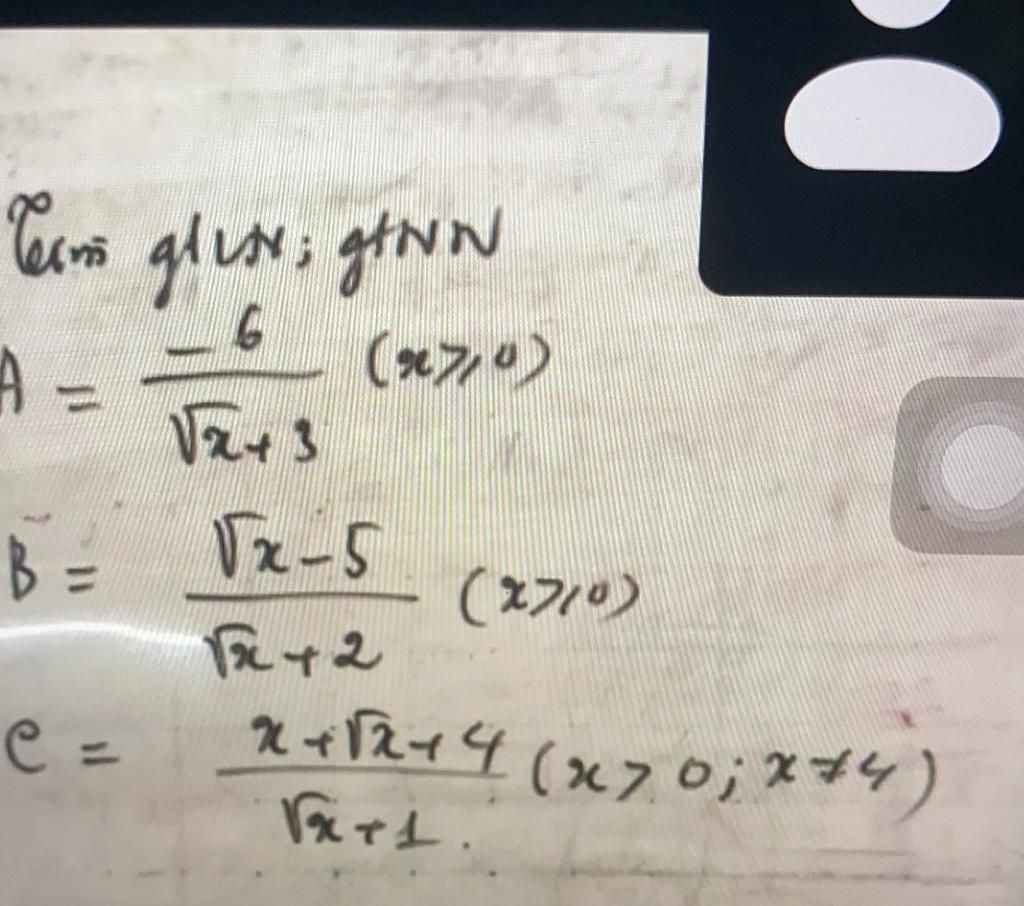 Tìm gtLN; gtNN
A = -6/(√x + 3) (x ≥ 0)
B = (√x - 5)/(√x + 2) (x ≥ 0)
C = (x + √x + 4)/(√x + 1) (x > 0; x ≠ 4)